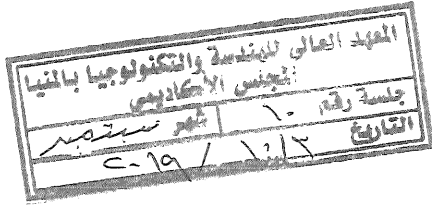 المعهد العالي للهندسة والتكنولوجيا بالمنيا
المجلس الأكاديمي
جلسة رقم ١٠ شهر سبتمبر
التاريخ ٢٠١٩ / ١٠ / ٣